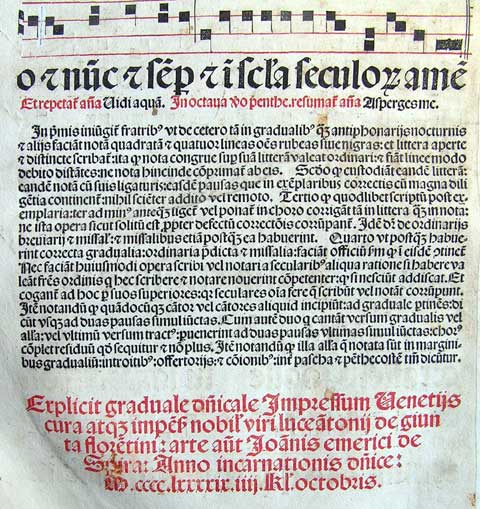 o ⁊ nūc ⁊ sēp ⁊ ī scľa seculoꝝ amē
Et repetaṯ añã Uidi aquã. In octaua ꝟo pēthe. resumaṯ añã Asperges me.
In pͥmis iniūgiṯ fratribꝰ vt de cetero tā in gradualibꝰ qꝫ antiphonarijs nocturnis
⁊ alijs faciāt notā quadratā ⁊ quatuor lineas oēs rubeas siue nigras: et littera aperte
⁊ distincte scribaṯ: ita ꝙ nota congrue sup̱ suā litterā valeat ordinari: ⁊ fiāt linee modo
debito distātes: ne nota hincinde cōpͥmaṯ ab eis. Scďo ꝙ custodiāt eandē litterā:
eandē notā cū suis ligaturis: easdē pausas que in exēplaribus correctis cū magna dili
gētia continenṯ: nihil sciēter addito vel remoto. Tertio ꝙ quodlibet scriptū post ex
emplaria: ter ad minꝰ anteqꝫ ligeṯ vel ponaṯ in choro corrigāṯ tā in littera qꝫ in nota:
ne ista opera sicut solitū est ꝓpter defectū correctōis corrūpanṯ. Idē dē de ordinarijs
breuiarij ⁊ missaľ: ⁊ missalibus etiā postqꝫ ea habuerint. Quarto vt postqꝫ habue
rint correcta gradualia: ordinaria p̄dicta ⁊ missalia: faciāt officiū sm̄ ꝙ ī eisdē ꝯtineṯ
Nec faciāt huiusmodi opera scribi vel notari a secularibꝰ aliqua ratione si habere va
leāt frēs ordinis qui hec scribere ⁊ notare nouerint cōpetenter: ꝙ si nesciūt addiscāt. Et
cogant̄ ad hoc ꝑ suos superiores: qꝛ seculares oīa fere q̄ scribūt vel notāt corrūpunt.
Itē notandū ꝙ quādocūqꝫ cātor vel cātores aliquid incipiūt: ad graduale ꝑtinēs: di
cūt vsqꝫ ad duas pausas simul iūctas. Cum autē duo qͥ cantāt versum gradualis vel
alľa: vel vltimū versum tractꝰ: ꝑuenerint ad duas pausas vltimas simul iūctas: chorꝰ
cōplet residuū qď sequitur ⁊ nō plus. Itē notandū ꝙ illa alľa qͥ notata sūt in margini
bus gradualiū: introitibꝰ: offertorijs: ⁊ cōionibꝰ: inť pascha ⁊ pēthecostē tm̄ dicūtur.
Explicit graduale dñicale Impressum Uenetijs
cura atqꝫ impēs̄ nobiľ viri luceātonij de giun
ta florētini: arte aūt Joānis emerici de
Spira: Anno incarnationis dñice:
M.cccc.lxxxxix.iiij.Kľ.octobris.